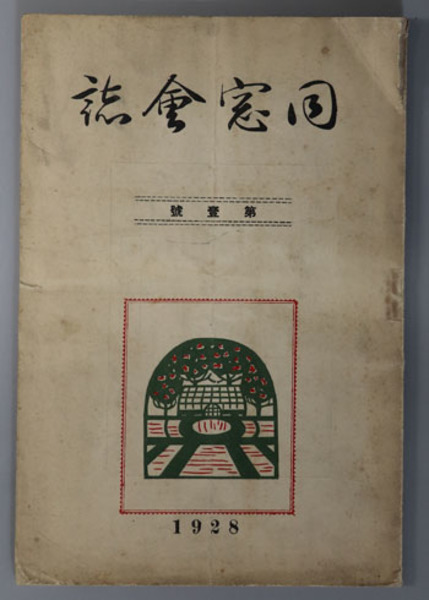 同窓會誌
第壹號
1928